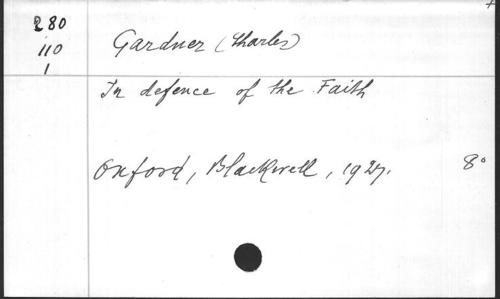 280
110
1
Gardner (Charles)
In defence of the Faith
Oxford, Blackwell, 1927. 8°